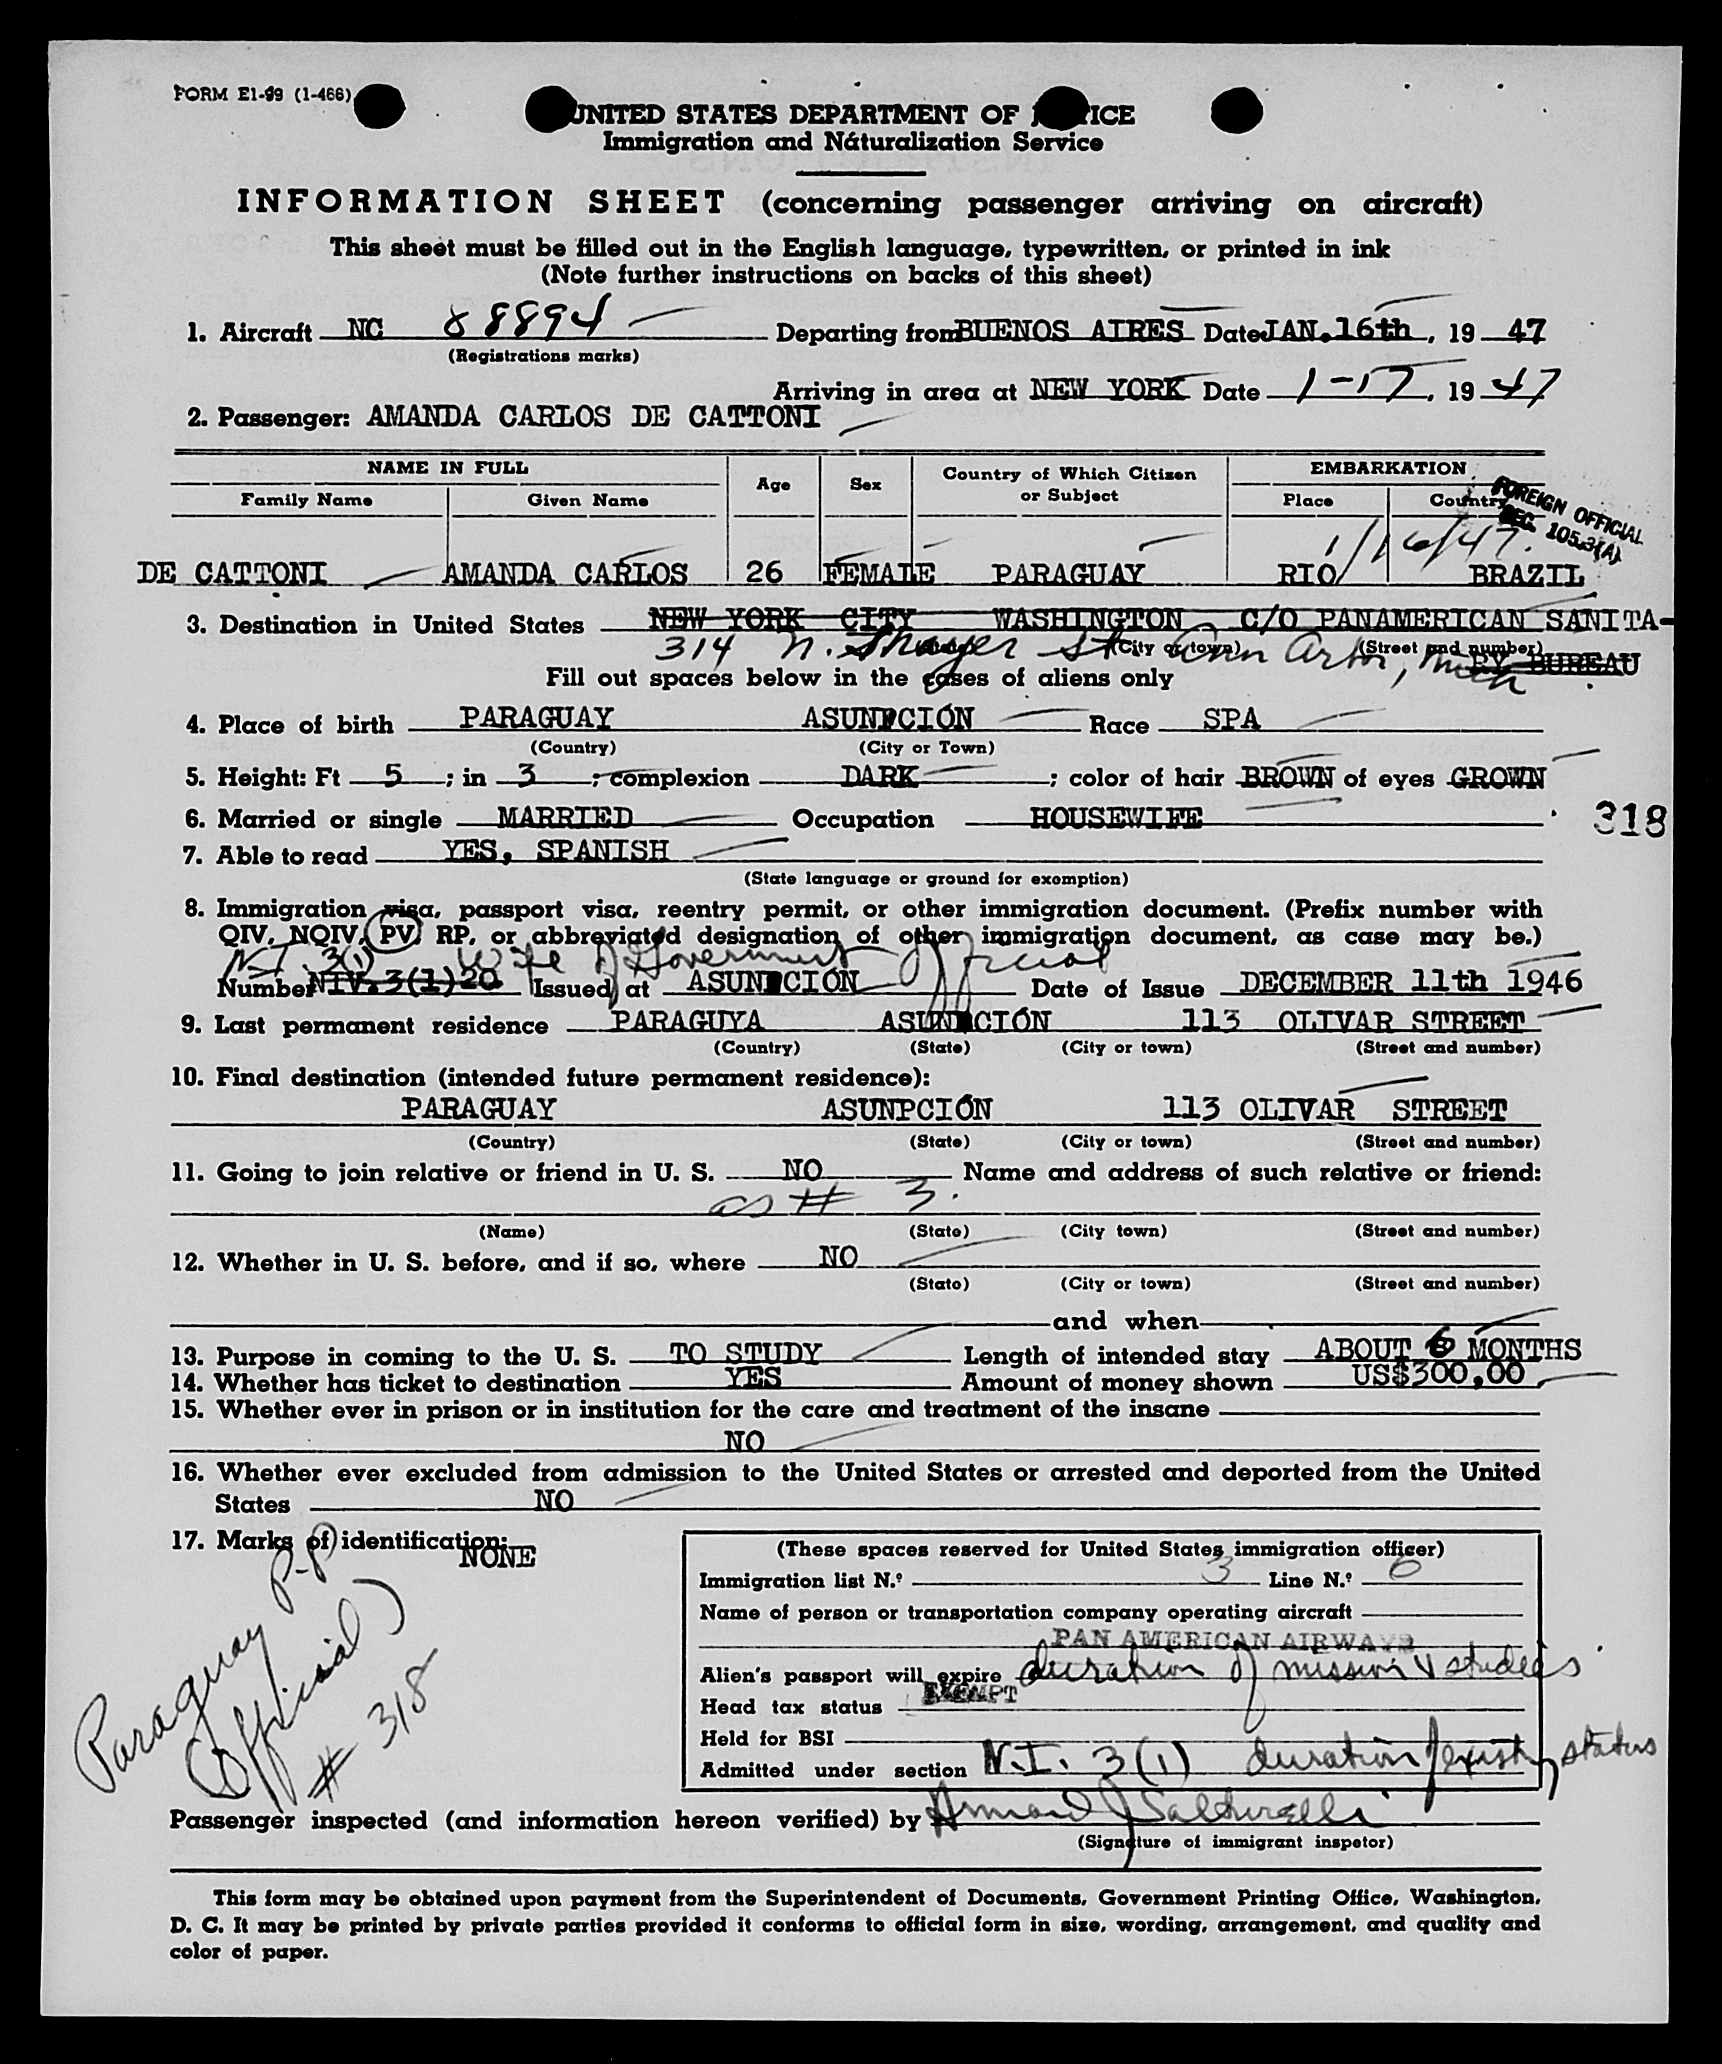 FORM E1-99 (1-466)
UNITED STATES DEPARTMENT OF J TICE
Immigration and Naturalization Service
INFORMATION SHEET (concerning passenger arriving on aircraft)
This sheet must be filled out in the English language, typewritten, or printed in ink
(Note further instructions on backs of this sheet)
1. Aircraft NC 88894 Departing from BUENOS AIRES Date JAN.16th, 19 47
(Registrations marks)
Arriving in area at NEW YORK Date 1-17, 19 47
2. Passenger: AMANDA CARLOS DE CATTONI
NAME IN FULL Age Sex Country of Which Citizen or Subject EMBARKATION
Family Name Given Name Place Country
FOREIGN OFFICIAL
SEC. 105.3(A)
1/16/47.
DE CATTONI AMANDA CARLOS 26 FEMALE PARAGUAY RIO BRAZIL
3. Destination in United States NEW YORK CITY WASHINGTON C/O PANAMERICAN SANITA-
314 N. Thayer St. Ann Arbor, Mich RY BUREAU
(City or town) (Street and number)
Fill out spaces below in the cases of aliens only
4. Place of birth PARAGUAY ASUNPCIÓN Race SPA
(Country) (City or Town)
5. Height: Ft 5; in 3; complexion DARK; color of hair BROWN of eyes GROWN
6. Married or single MARRIED Occupation HOUSEWIFE
318
7. Able to read YES, SPANISH
(State language or ground for exemption)
8. Immigration visa, passport visa, reentry permit, or other immigration document. (Prefix number with
QIV, NQIV, PV, RP, or abbreviated designation of other immigration document, as case may be.)
N.I. 3(1) Wife of Government Official
Number NIV. 3(1)20 Issued at ASUNPCIÓN Date of Issue DECEMBER 11th 1946
9. Last permanent residence PARAGUYA ASUNPCIÓN 113 OLIVAR STREET
(Country) (State) (City or town) (Street and number)
10. Final destination (intended future permanent residence):
PARAGUAY ASUNPCIÓN 113 OLIVAR STREET
(Country) (State) (City or town) (Street and number)
11. Going to join relative or friend in U. S. NO Name and address of such relative or friend:
as # 3.
(Name) (State) (City town) (Street and number)
12. Whether in U. S. before, and if so, where NO
(State) (City or town) (Street and number)
and when
13. Purpose in coming to the U. S. TO STUDY Length of intended stay ABOUT 6 MONTHS
14. Whether has ticket to destination YES Amount of money shown US$300,00
15. Whether ever in prison or in institution for the care and treatment of the insane
NO
16. Whether ever excluded from admission to the United States or arrested and deported from the United
States NO
17. Marks of identification: NONE
Paraguay P-P
(Official)
# 318
(These spaces reserved for United States immigration officer)
Immigration list N.º 3 Line N.º 6
Name of person or transportation company operating aircraft
PAN AMERICAN AIRWAYS
Alien's passport will expire duration of mission & studies
Head tax status EXEMPT
Held for BSI
Admitted under section N.I. 3(1) duration of existing status
Passenger inspected (and information hereon verified) by
(Signature of immigrant inspetor)
This form may be obtained upon payment from the Superintendent of Documents, Government Printing Office, Washington,
D. C. It may be printed by private parties provided it conforms to official form in size, wording, arrangement, and quality and
color of paper.